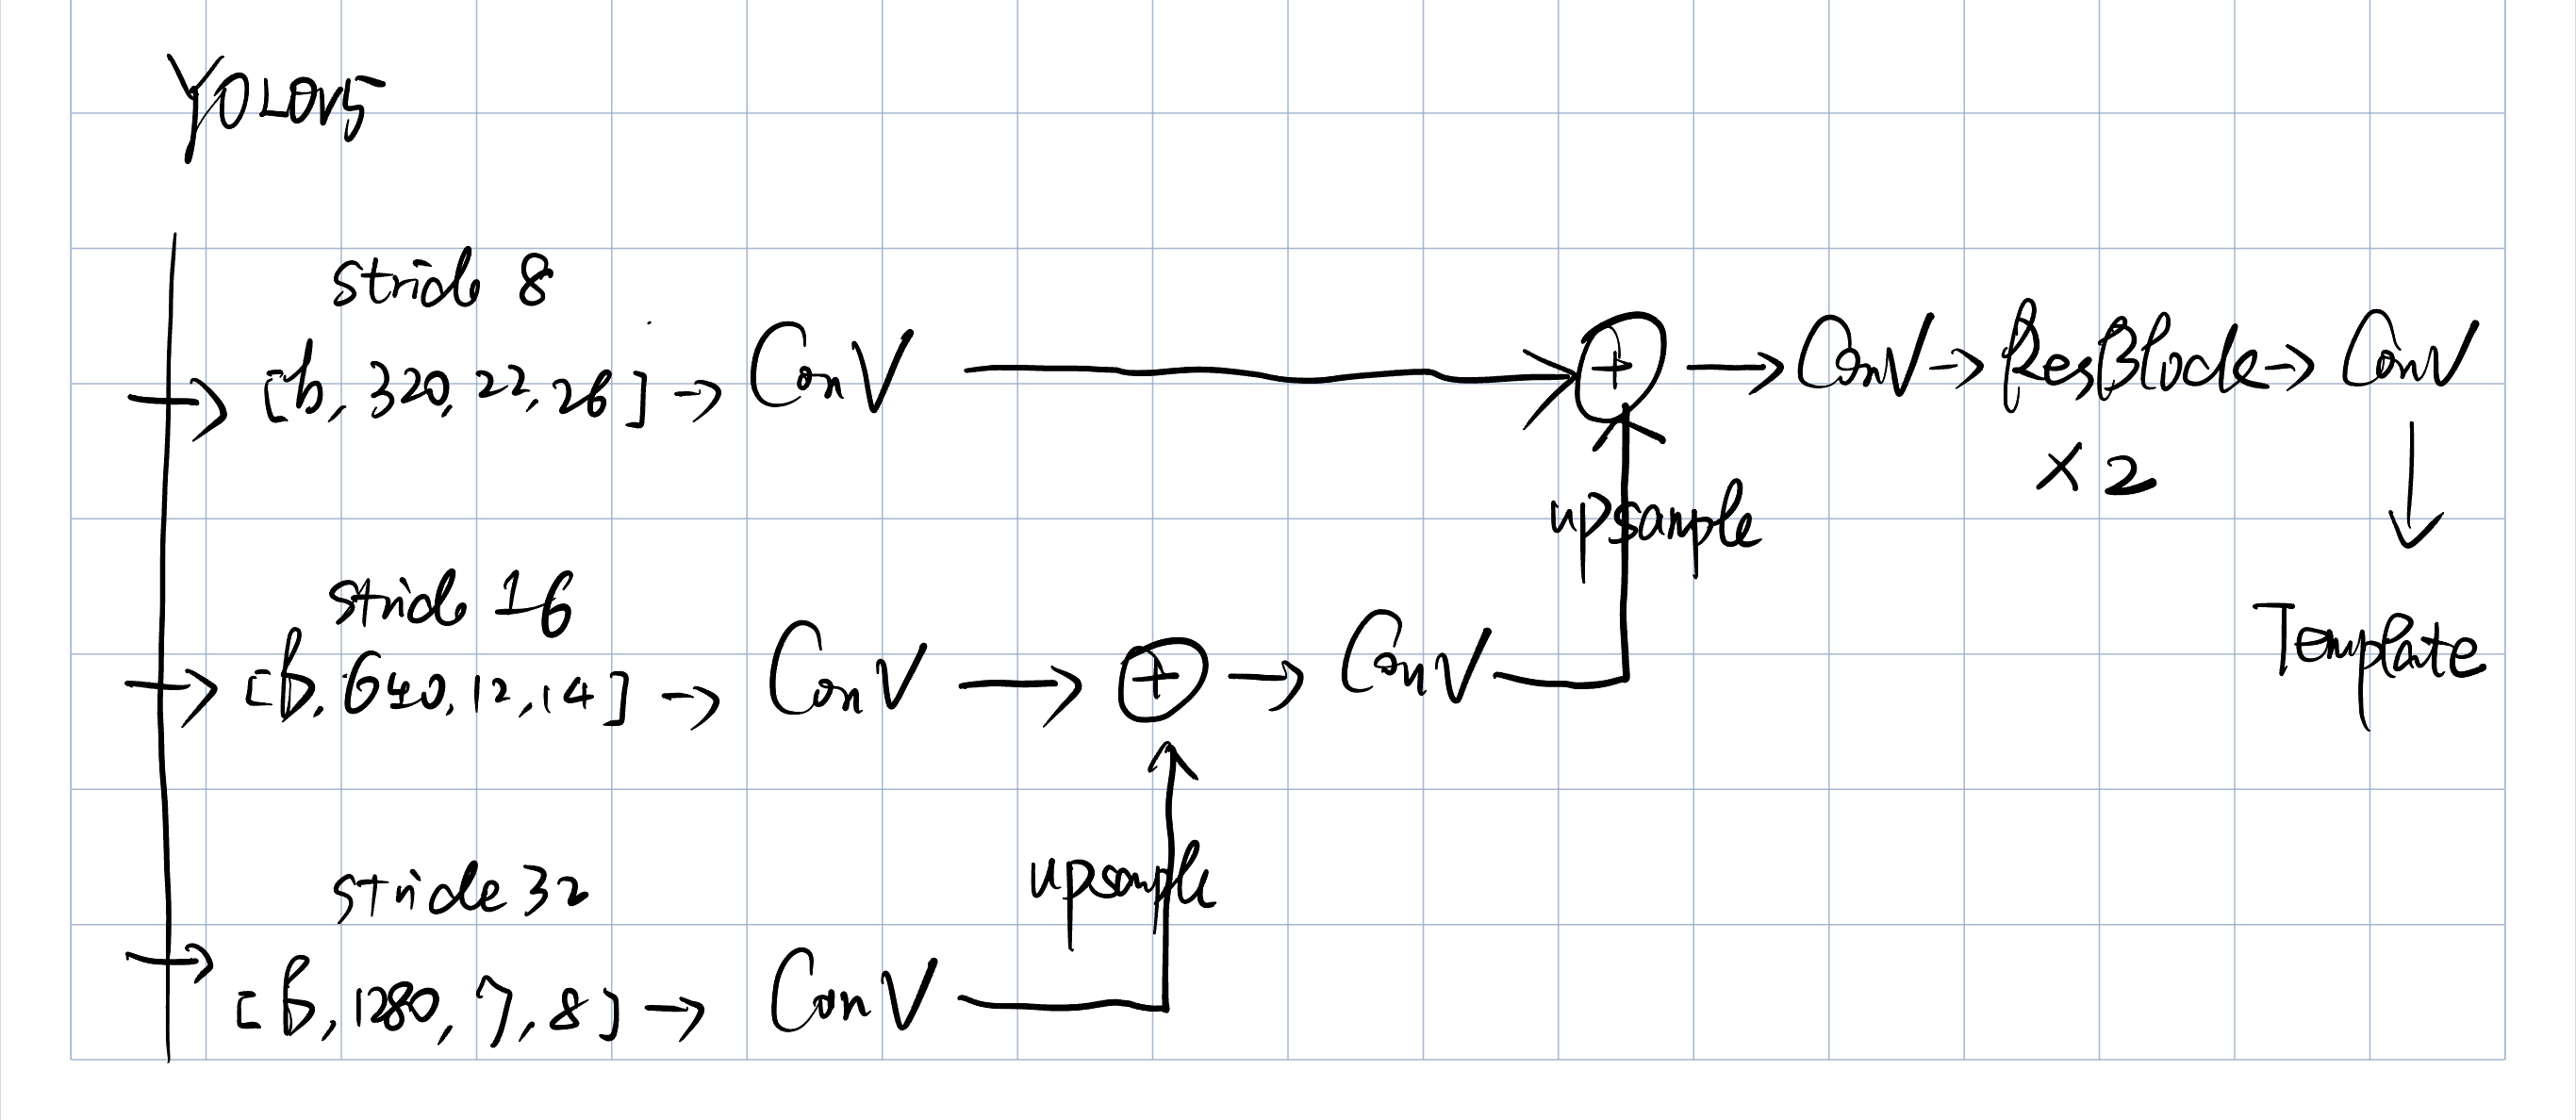 YOLOv5
stride 8
[b, 320, 22, 26] → Conv → + → Conv → ResBlock → Conv
× 2
upsample
stride 16
[b, 640, 12, 14] → Conv → + → Conv
Template
upsample
stride 32
[b, 1280, 7, 8] → Conv